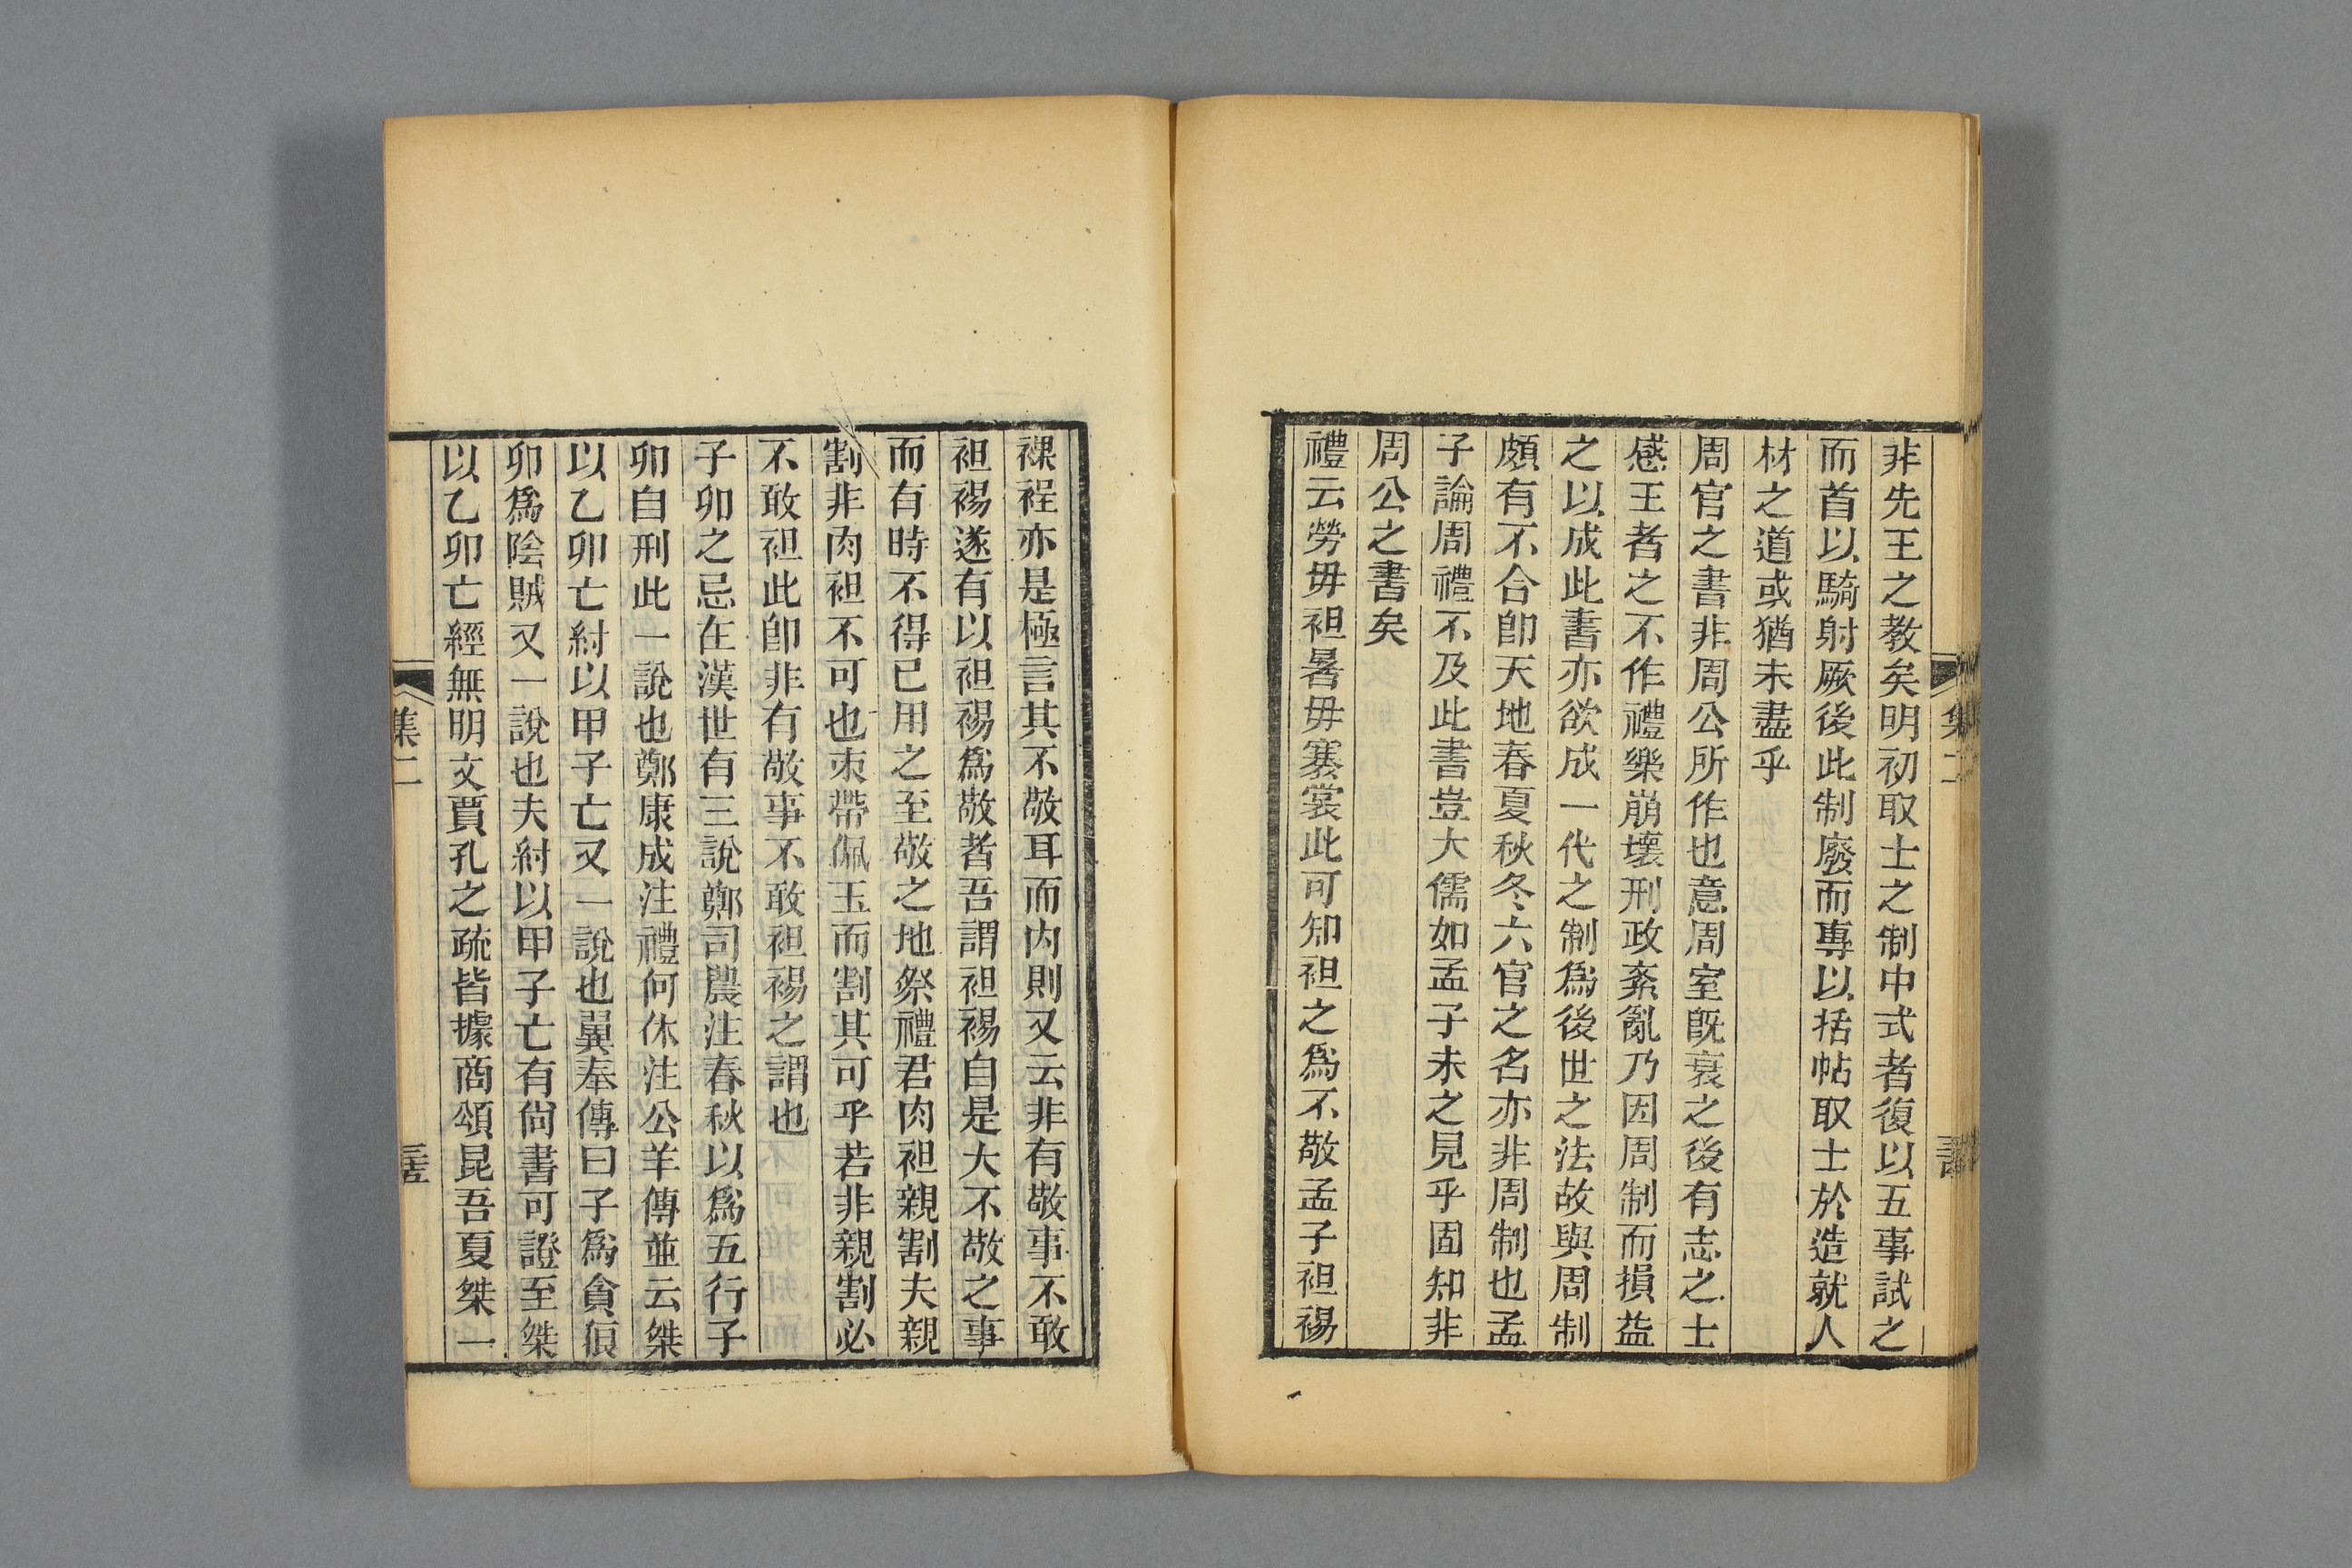 非先王之教矣明初取士之制中式者復以五事試之
而首以騎射厥後此制廢而專以括帖取士於造就人
材之道或猶未盡乎
周官之書非周公所作也意周室旣衰之後有志之士
感王者之不作禮樂崩壞刑政紊亂乃因周制而損益
之以成此書亦欲成一代之制爲後世之法故與周制
頗有不合卽天地春夏秋冬六官之名亦非周制也孟
子論周禮不及此書豈大儒如孟子未之見乎固知非
周公之書矣
禮云勞毋袒暑毋褰裳此可知袒之爲不敬孟子袒裼
裸裎亦是極言其不敬耳而內則又云非有敬事不敢
袒裼遂有以袒裼爲敬者吾謂袒裼自是大不敬之事
而有時不得已用之至敬之地祭禮君肉袒親割夫親
割非肉袒不可也束帶佩玉而割其可乎若非親割必
不敢袒此卽非有敬事不敢袒裼之謂也
子卯之忌在漢世有三說鄭司農注春秋以爲五行子
卯自刑此一說也鄭康成注禮何休注公羊傳並云桀
以乙卯亡紂以甲子亡又一說也翼奉傳曰子爲貪狼
卯爲陰賊又一說也夫紂以甲子亡有尙書可證至桀
以乙卯亡經無明文賈孔之疏皆據商頌昆吾夏桀一
集二